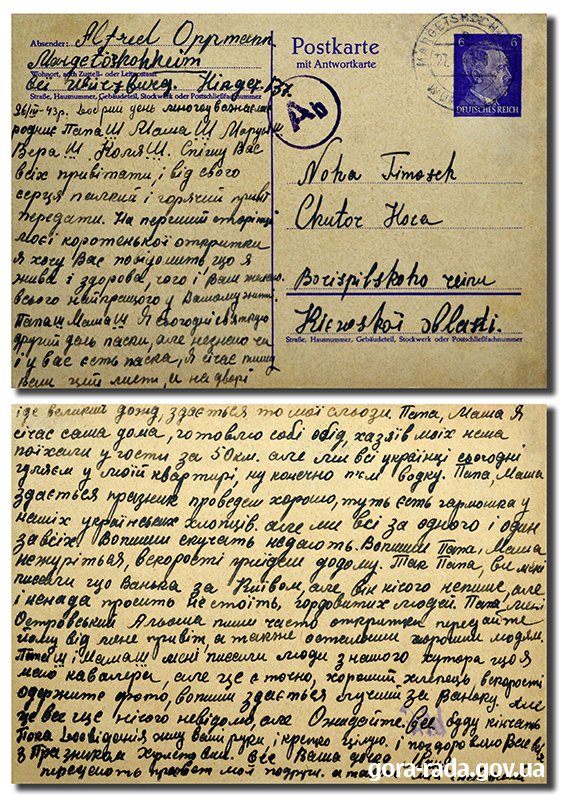 Absender: Alfred Oppmann
Margetshöchheim
Wohnort, auch Zustell- oder Leitpostamt
bei Würzburg. Hinger. 137.
Straße, Hausnummer, Gebäudeteil, Stockwerk oder Postschließfachnummer
Postkarte
mit Antwortkarte
MARGETSHÖCH
6 6
DEUTSCHES REICH
Ab
Noha Timosch
Chutor Hora
Borispilskoho
Kiewskoi oblasti.
Straße, Hausnummer, Gebäudeteil, Stockwerk oder Postschließfachnummer
26/IV-43р. Добрий день многоуважаєм
родичі Папа!!! Мама!!! Маруся!!!
Вера!!! Коля!!!. Спішу Вас
всіх привітати і від свого
серця палкий і горячий привіт
передати. На першій сторінці
моєї коротенької открытки
я хочу Вас повідомить що я
жива і здорова, чого і Вам желаю
всього найкращого у Вашому житті.
Папа!!! Мама!!! Я сьогодні святкую
другий день паски, але незнаю чи
і у вас єсть паска, я січас пишу
Вам цей лист, и на дворі
іде великий дощ, здається то мої сльози. Папа, Мама Я
січас сама дома, готовлю собі обід, хазяїв моїх нема
поїхали у гости за 50 км. але ми всі українці сьогодні
гуляєм у моїй квартирі, ну конечно п'єм водку. Папа, Мама
здається празник проведем хорошо, тутъ єсть гармошка у
наших українських хлопців. але ми всі за одного і один
за всіх. скучать недають. Папа, Мама
нежуріться, вскорості приїдем додому. Так Папа, ви мені
писали що Ванька за Київом, але він нічого непише, але
і ненада просить нестоїть, гордовитих людей. Папа, мені
Островський Альоша пиши часто открытки передайте
йому від мене привіт а также остальним хорошим людям.
Папа!!! і Мама!!! мені писали люди з нашого хутора що я
маю кавалєра, але це є точно, хороший хлопець вскорості
одержите фото, здається лучший за Ваньку. Але
це все ще нічого невідомо, але Ожидайте. Все буду кінчать
Пока Досвіданія жму Ваші руки, і крепко цілую. і поздоровляю Вас
з Празником Христовим. Все Ваша дочка
передають привет мої подруги. а также
gora-rada.gov.ua